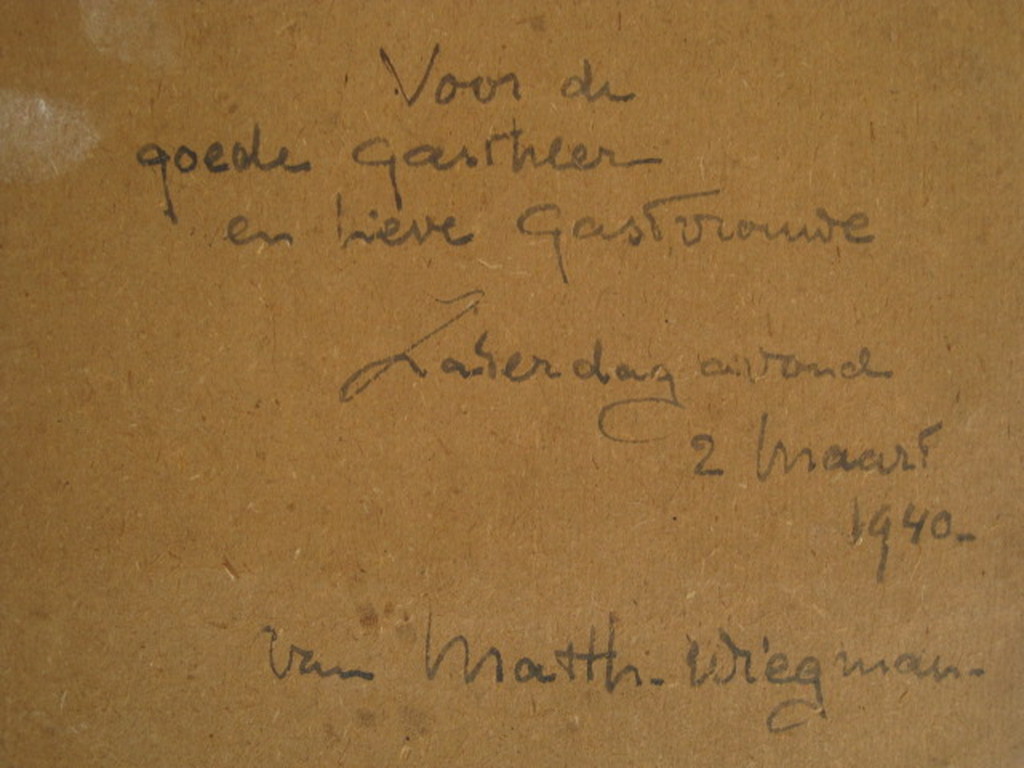 Voor de
goede Gastheer
en lieve Gastvrouwe
Zaterdag avond
2 Maart
1940-
Van Matth. Wiegman-